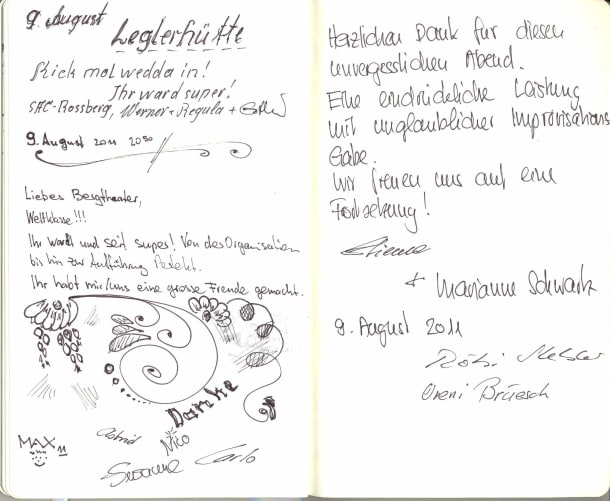 9. August
Leglerhütte
Schick mol wedda in!
Ihr ward super!
SAC-Rossberg, Werner + Regula +
9. August 2011 20⁵⁰
Liebes Bergtheater,
Weltklasse!!!
Ihr wardt und seit super! Von der Organisation
bis hin zur Aufführung Perfekt.
Ihr habt mir/uns eine grosse Freude gemacht.
Danke
Astrid
Nico
MAX 11
Susanne Carlo
Herzlichen Dank für diesen
unvergesslichen Abend.
Eine eindrückliche Leistung
mit unglaublicher Improvisations
Gabe.
Wir freuen uns auf eine
Fortsetzung!
Etienne
+ Marianne Schwartz
9. August 2011
Röbi
Oreni Brüesch